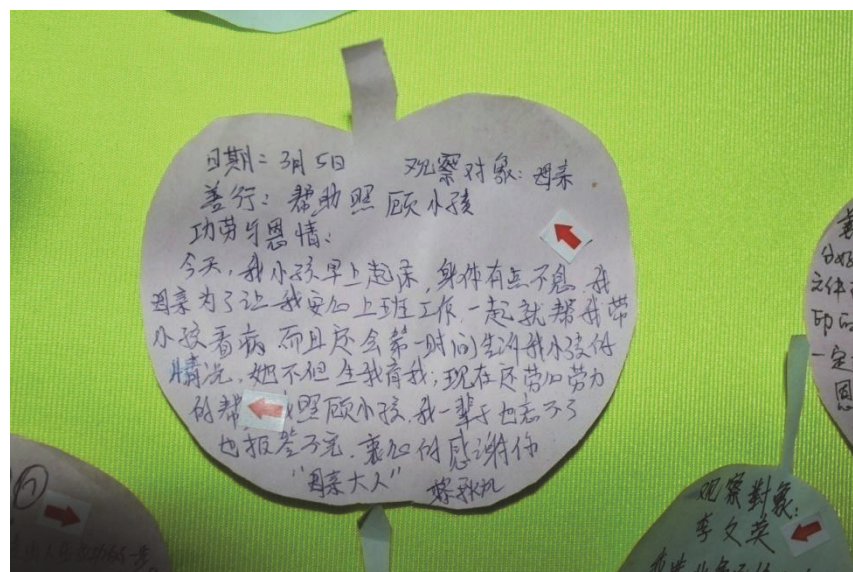 日期：3月5日 观察对象：母亲
善行：帮助照顾小孩
功劳与恩情：
今天，我小孩早上起床，身体有点不息，我
母亲为了让我安心上班工作，一起就帮我带
小孩看病而且还会第一时间告诉我小孩的
情况，她不但生我育我，现在还劳心劳力
的帮 照顾小孩，我一辈子也忘不了
也报答不完，衷心的感谢你
“母亲大人”
观察对象：
李文英
文件
印
一定
恩